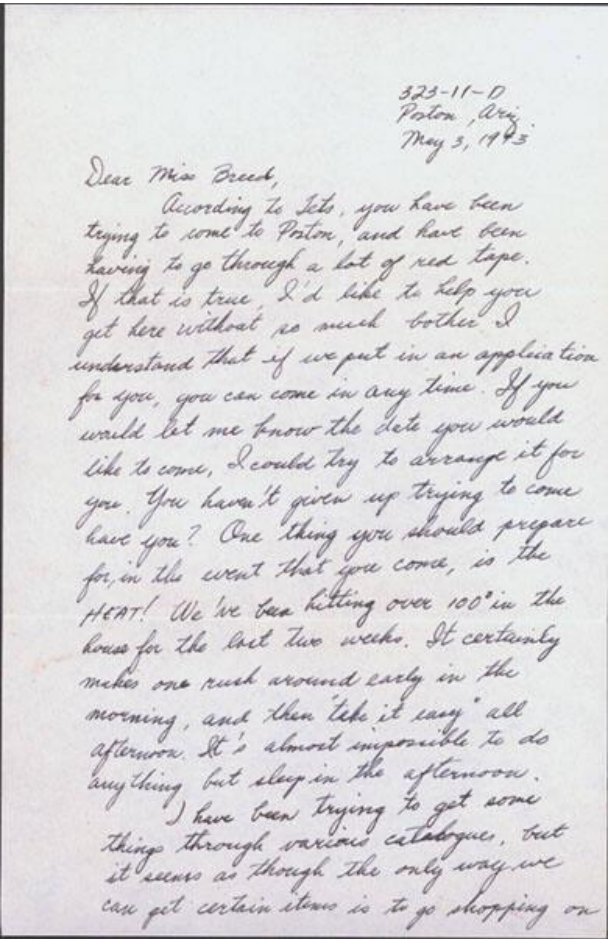 323-11-D
Poston, Ariz
May 3, 1943
Dear Miss Breed,
According to Tets, you have been
trying to come to Poston, and have been
having to go through a lot of red tape.
If that is true, I'd like to help you
get here without so much bother. I
understand that if we put in an application
for you, you can come in any time. If you
would let me know the date you would
like to come, I could try to arrange it for
you. You haven't given up trying to come
have you? One thing you should prepare
for, in the event that you come, is the
HEAT! We've been hitting over 100° in the
house for the last two weeks. It certainly
makes one rush around early in the
morning, and then "take it easy" all
afternoon. It's almost impossible to do
anything but sleep in the afternoon.
I have been trying to get some
things through various catalogues, but
it seems as though the only way we
can get certain items is to go shopping on